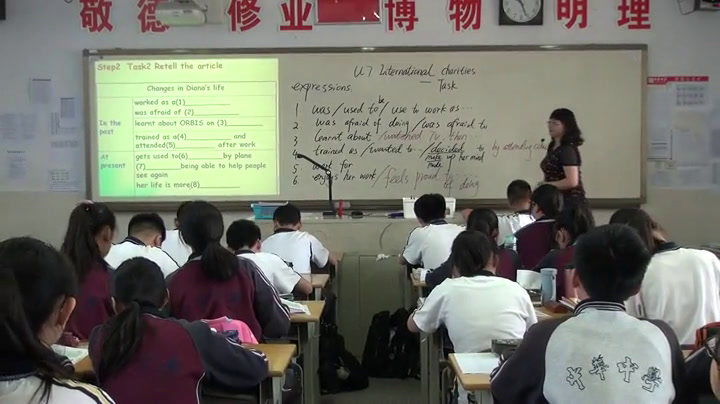 敬德 修业 博物 明理
Step2 Task2 Retell the article
Changes in Diana's life
In the past
worked as a(1)
was afraid of (2)
learnt about ORBIS on (3)
trained as a(4) and
attended(5) after work
At present
gets used to(6) by plane
(7) being able to help people
see again
her life is more(8)
U.7 International charities
— Task
expressions.
1 was / used to be / use to work as …
2 was afraid of doing / was afraid to
3 learnt about /
4 trained as / wanted to … / decided to by attending
made up her mind
5 for
6. enjoys her work / feels proud
of doing
中学